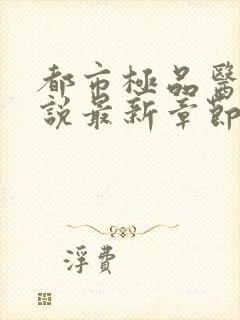 都市極品醫
說最新章節
浮費